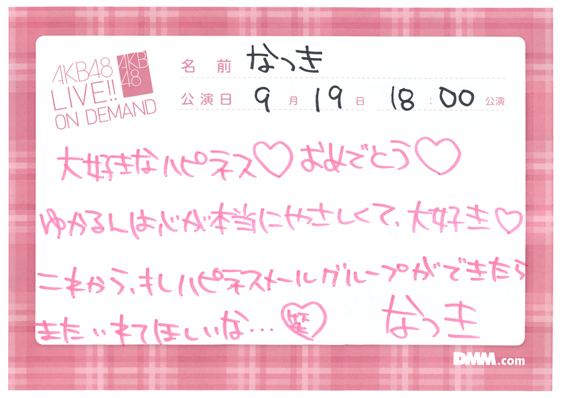 AKB48
LIVE!!
ON DEMAND
AKB
48
名前 なっき
公演日 9月19日 18:00公演
大好きなハピネス♡おめでとう♡
ゆかるんは心が本当にやさしくて、大好き♡
これから、もしハピネスメールグループができたら
またいれてほしいな…笑
なっき
DMM.com